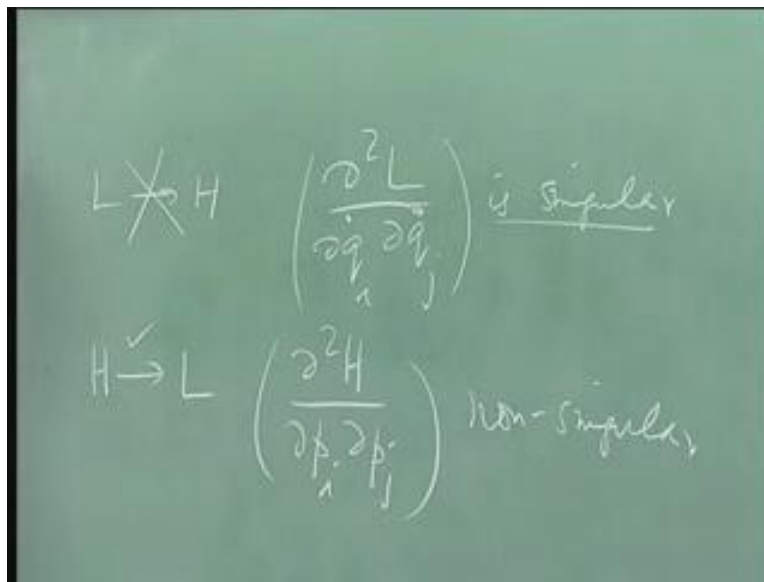 L ↛ H (∂²L / ∂q̇ᵢ ∂q̇ⱼ) is singular
H →✓ L (∂²H / ∂pᵢ ∂pⱼ) non-singular